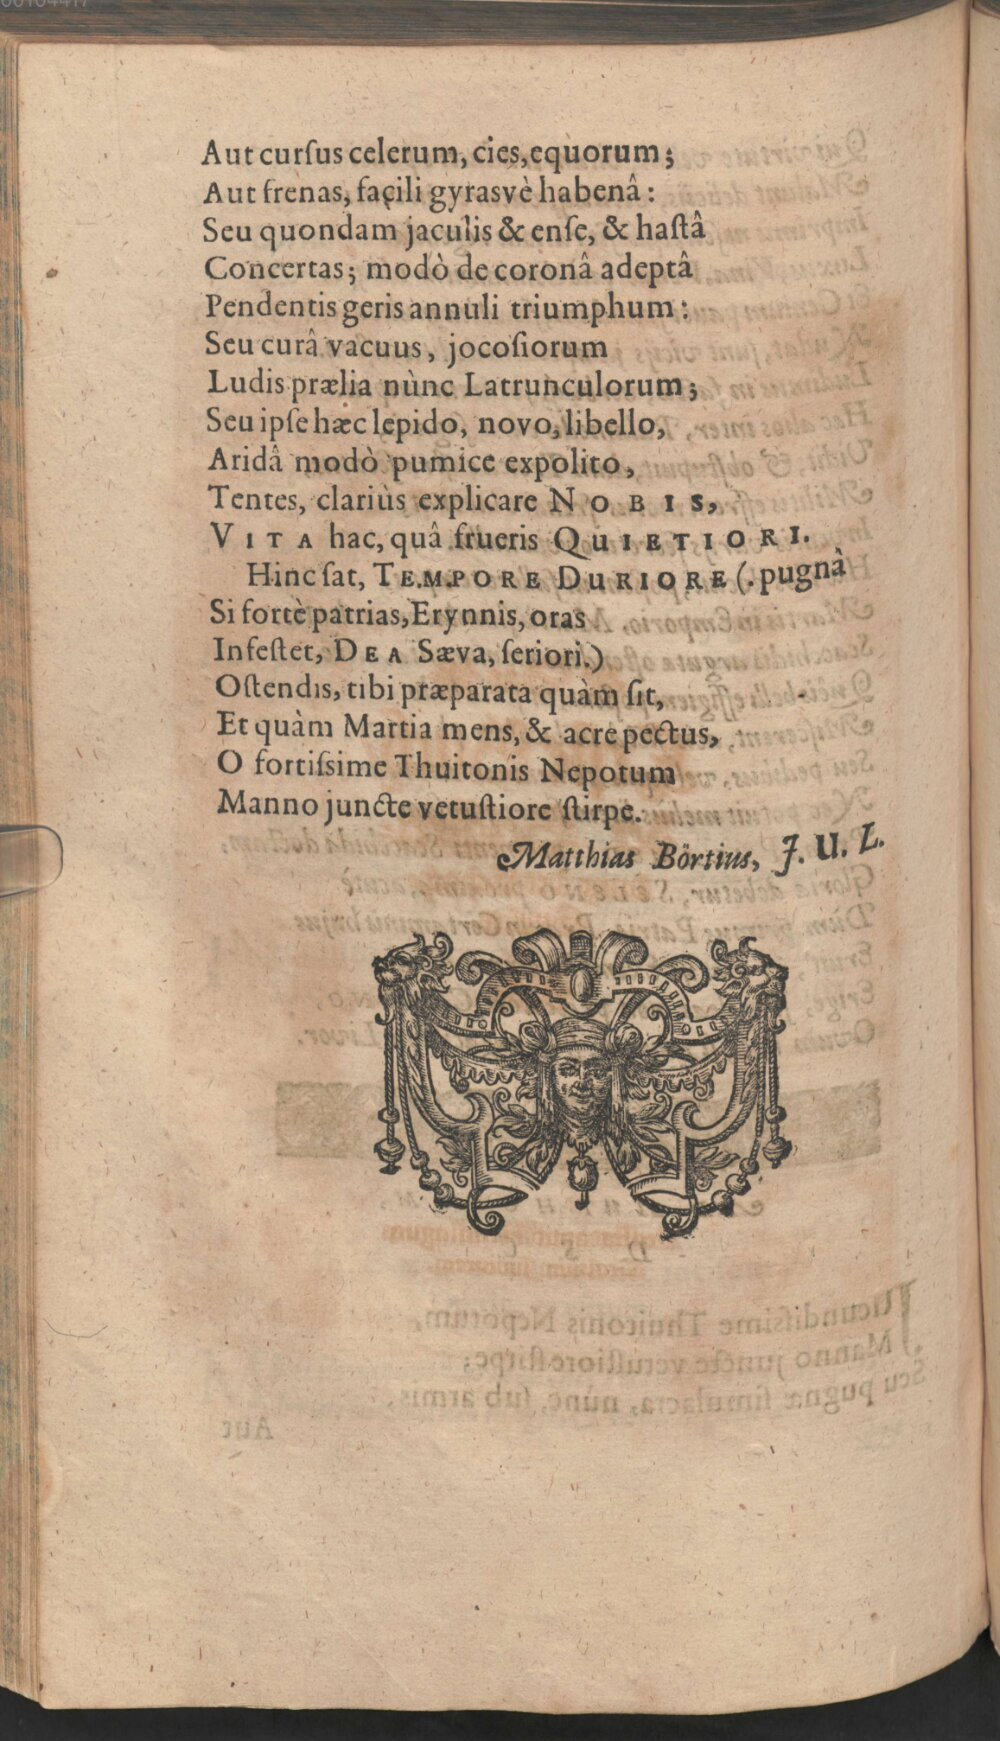 Aut curſus celerum, cies, equorum;
Aut frenas, façili gyrasvè habenâ:
Seu quondam jaculis & enſe, & haſtâ
Concertas; modò de coronâ adeptâ
Pendentis geris annuli triumphum:
Seu curâ vacuus, jocoſiorum
Ludis prælia nùnc Latrunculorum;
Seu ipſe hæc lepido, novo, libello,
Aridâ modò pumice expolito,
Tentes, clariùs explicare NOBIS,
VITA hac, quâ frueris QUIETIORI.
Hinc ſat, TEMPORE DURIORE (.pugnà
Si fortè patrias, Erynnis, oras
Infeſtet, DEA Sæva, ſeriori.)
Oſtendis, tibi præparata quàm ſit,
Et quàm Martia mens, & acre pectus,
O fortiſsime Thuitonis Nepotum
Manno juncte vetuſtiore ſtirpe.
Matthias Börtius, J. U. L.